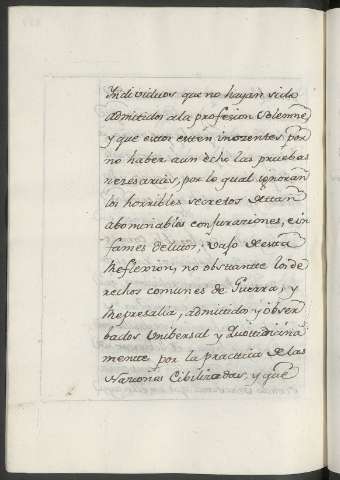 Individuos que no hayan sido
admitidos a la profesion Solemne,
y que estos estén inozentes por
no haber aun echo las pruebas
nezesarias, por lo qual ignoran
los horribles secretos de tan
abominables conjuraziones, e in
fames delitos, vajo de esta
Reflexion, no obstante los de
rechos comunes de Guerra, y
Represalia, admitidos y obser
bados Unibersal y Quotidiana
mente por la practica de las
Naziones Cibilizadas, y que